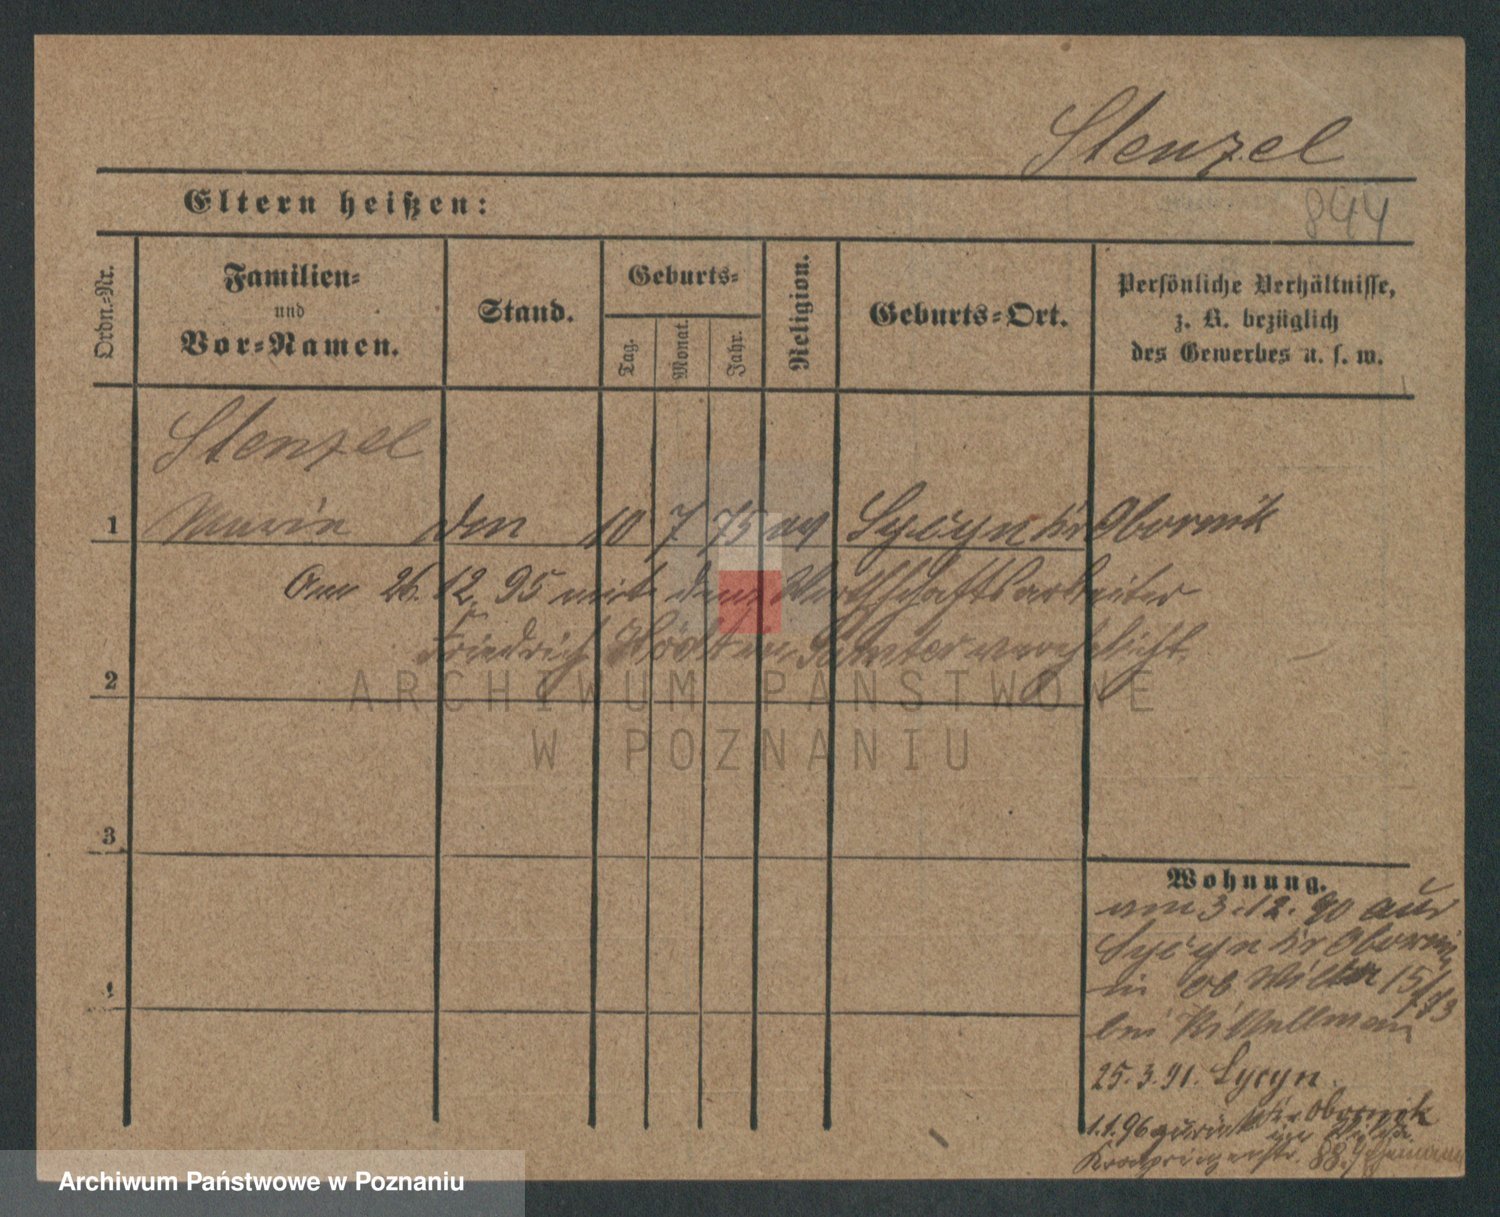 Stenzel
Eltern heißen:
844
Ordn.-Nr.
Familien-
und
Vor-Namen.
Stand.
Geburts-
Tag.
Monat.
Jahr.
Religion.
Geburts-Ort.
Persönliche Verhältnisse,
z. B. bezüglich
des Gewerbes u. s. w.
Stenzel
1 Marie den 10 7 75 ev Kr Obornik
Am 26.12.95 mit dem Wirthschaftsarbeiter
Friedrich verehelicht.
2
ARCHIWUM PAŃSTWOWE
W POZNANIU
3
Wohnung.
am 3.12.90 aus
Kr Obornik
in Ob Wilda 15/
bei
4
25.3.91.
1.1.96 zurück Kr Obornik
Kronprinzenstr. 88.
Archiwum Państwowe w Poznaniu